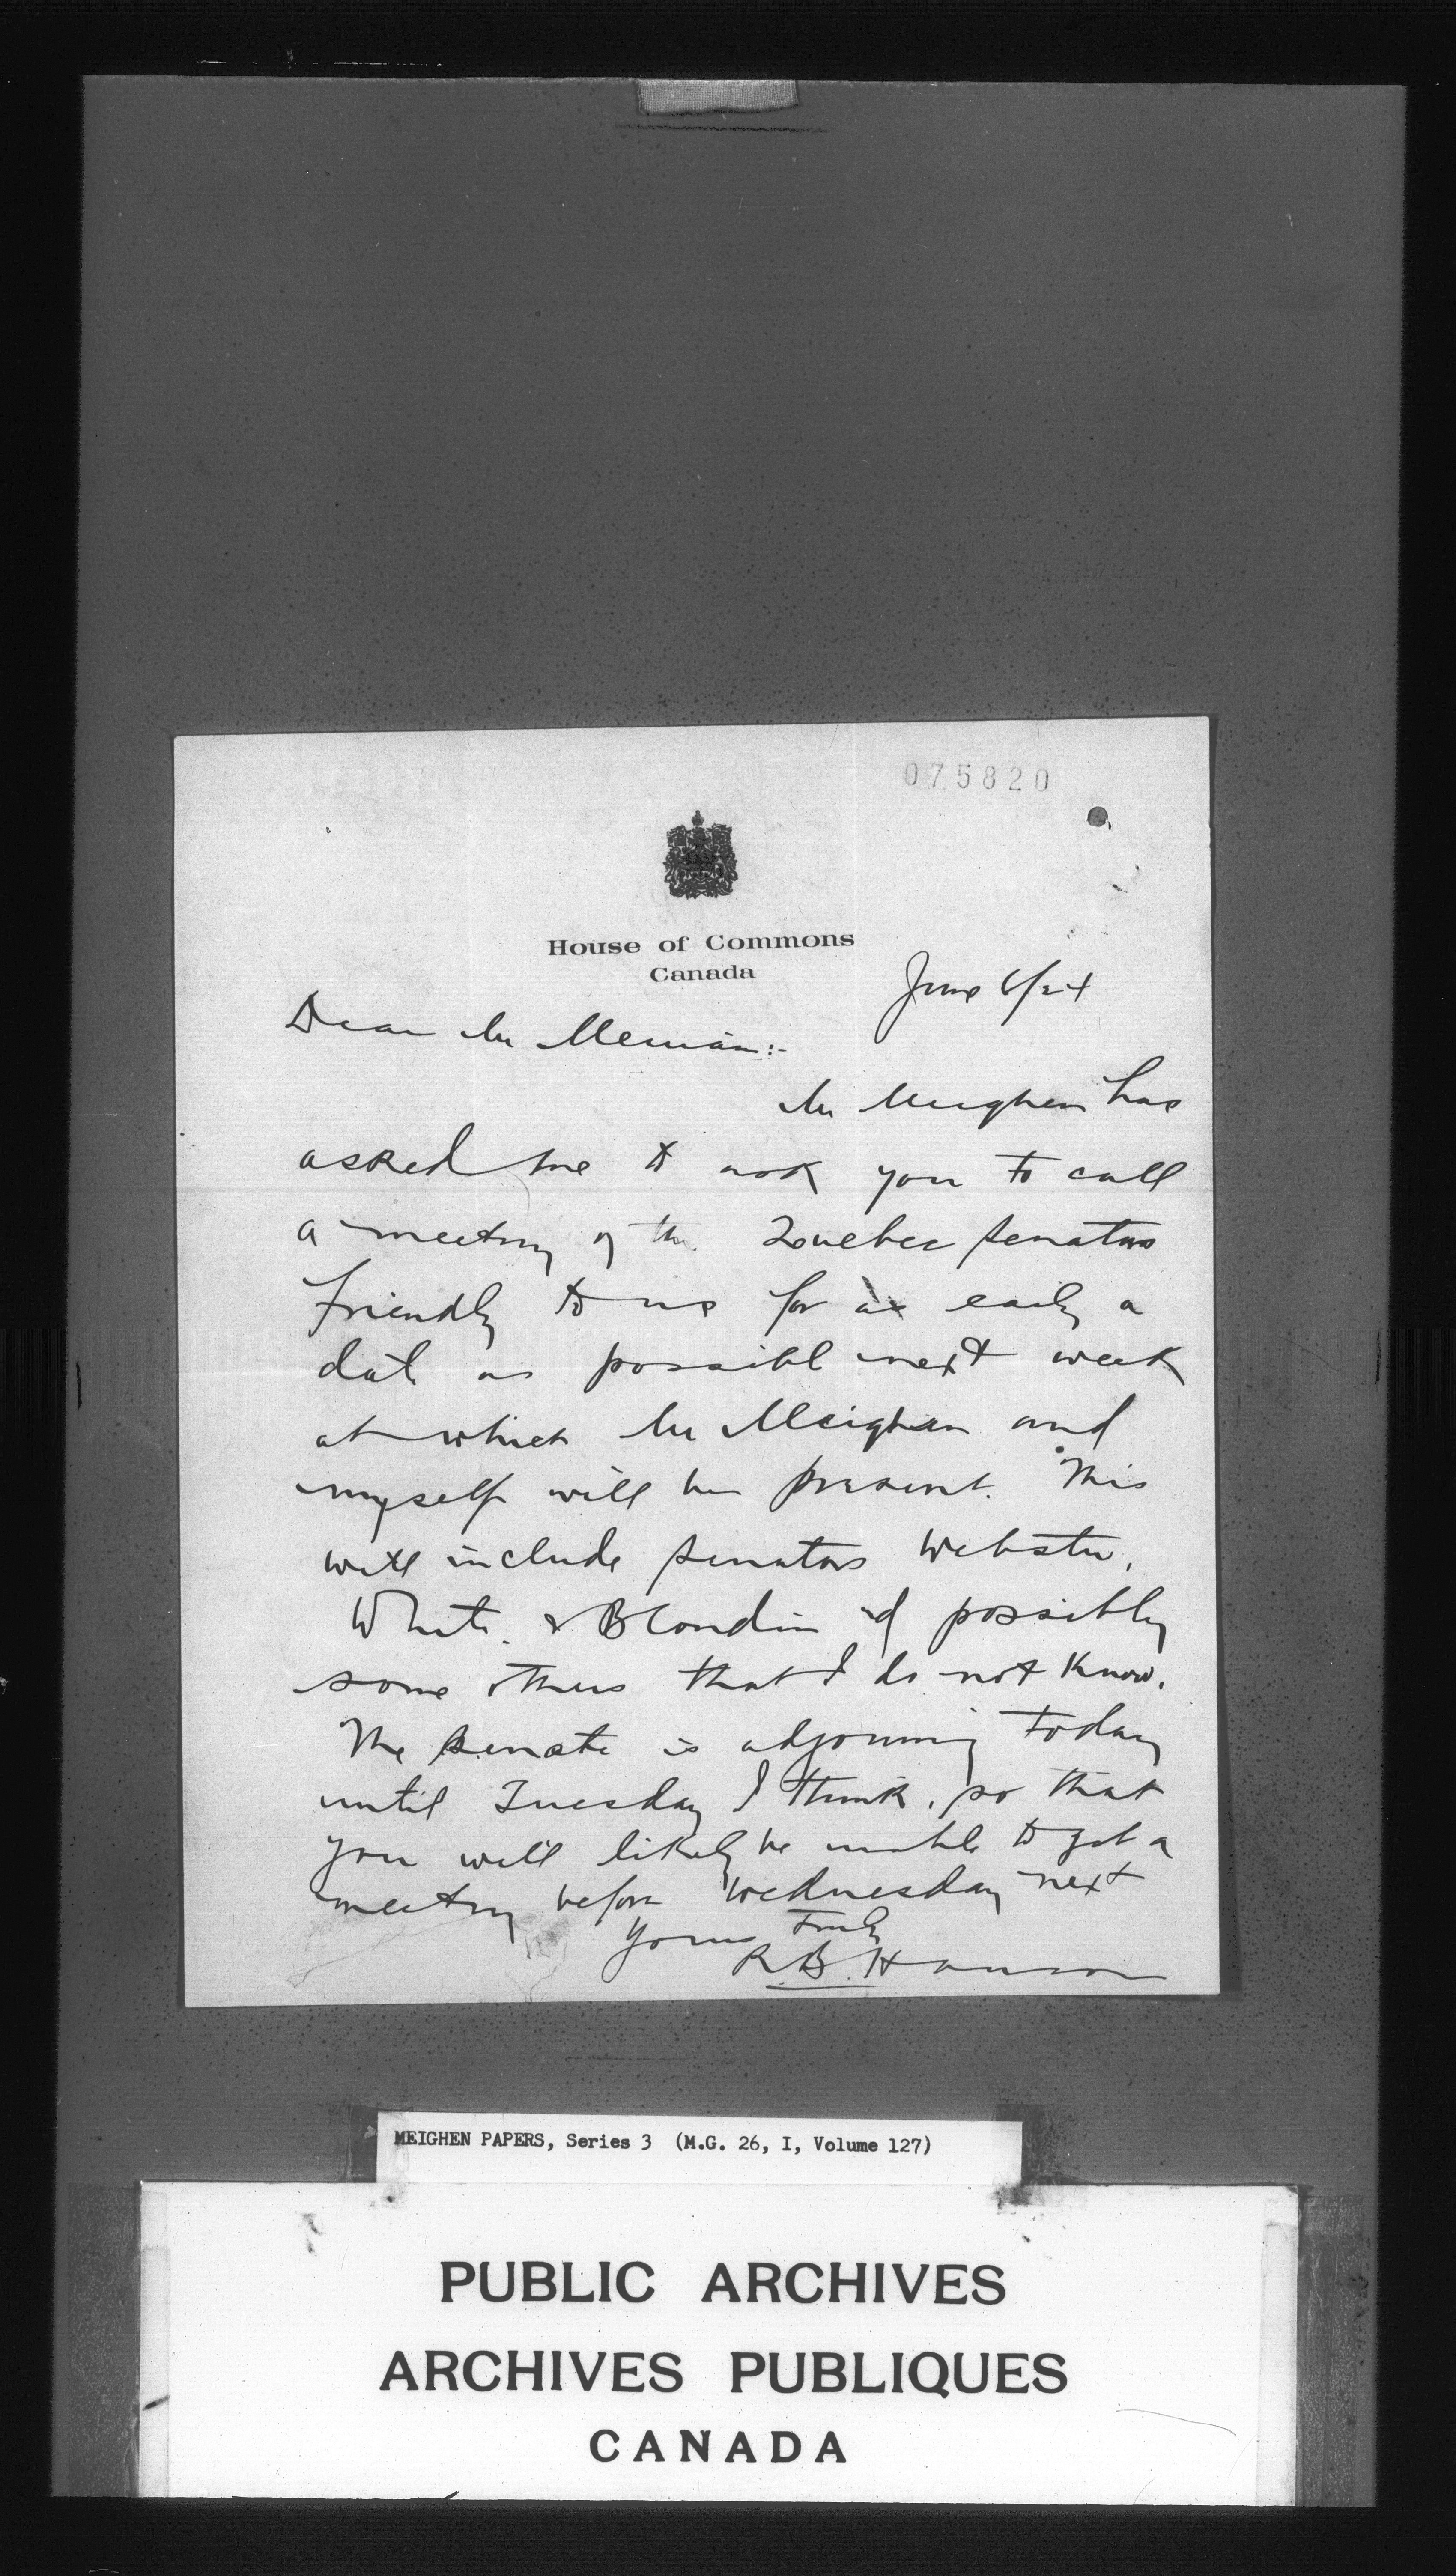 075820
House of Commons
Canada
June 6/24
Dear Mr
Mr Meighen has
asked me to ask you to call
a meeting of the Quebec Senators
friendly to us for as early a
date as possible next week
at which Mr Meighen and
myself will be present. This
will include Senators Webster,
White & Blondin & possibly
some others that I do not know.
The Senate is adjourning today
until Tuesday I think, so that
you will likely be unable to get a
meeting before Wednesday next
Yours truly
R.B. Hanson
MEIGHEN PAPERS, Series 3 (M.G. 26, I, Volume 127)
PUBLIC ARCHIVES
ARCHIVES PUBLIQUES
CANADA